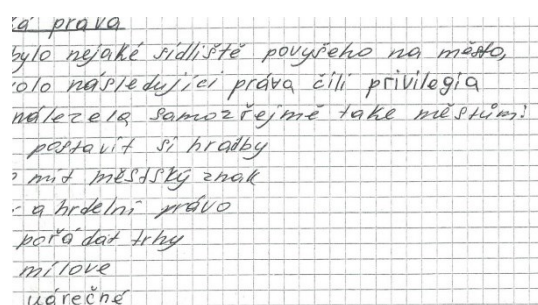 ká práva
bylo nejaké sídliště povyšeho na město,
olo následující práva čili privilegia
nálezela samozřejmě take městům:
postavit si hradby
mít městský znak
a hrdelní právo
pořádat trhy
mílove
várečné